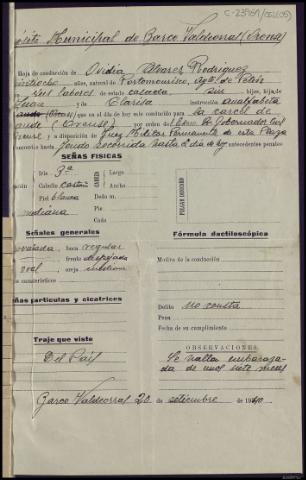 C-23969/
ósito Municipal de Barco Valdeorras (Orense)
Hoja de conducción de Ovidia Alvarez Rodriguez
natural de Portomourisco, Ayt.º de Petín
sus labores de estado casada sin hijos, hija de
Juan y de Clarisa instrucción analfabeta
que en el día de hoy sale conducido para la carcel de
por orden del Excmo Sr. Gobernador Civil
y a disposición de Juez Militar Permanente de esta Plaza
hasta el día de hoy antecedentes penales
SEÑAS FISICAS
Iris 3ª
Cabello castaño
Piel blanca
mediana
CABEZA
Largo
Ancho
Dedo m.
Pie
Codo
PULGAR DERECHO
Señales generales
boca regular
frente despejada
oreja
Señas particulares y cicatrices
Traje que viste
Del País
Fórmula dactiloscópica
Motivo de la conducción
Delito no consta
Pena
Fecha de su cumplimiento
OBSERVACIONES
Se halla embaraza-
da de unos siete meses
Barco Valdeorras 20 de setiembre de 1940